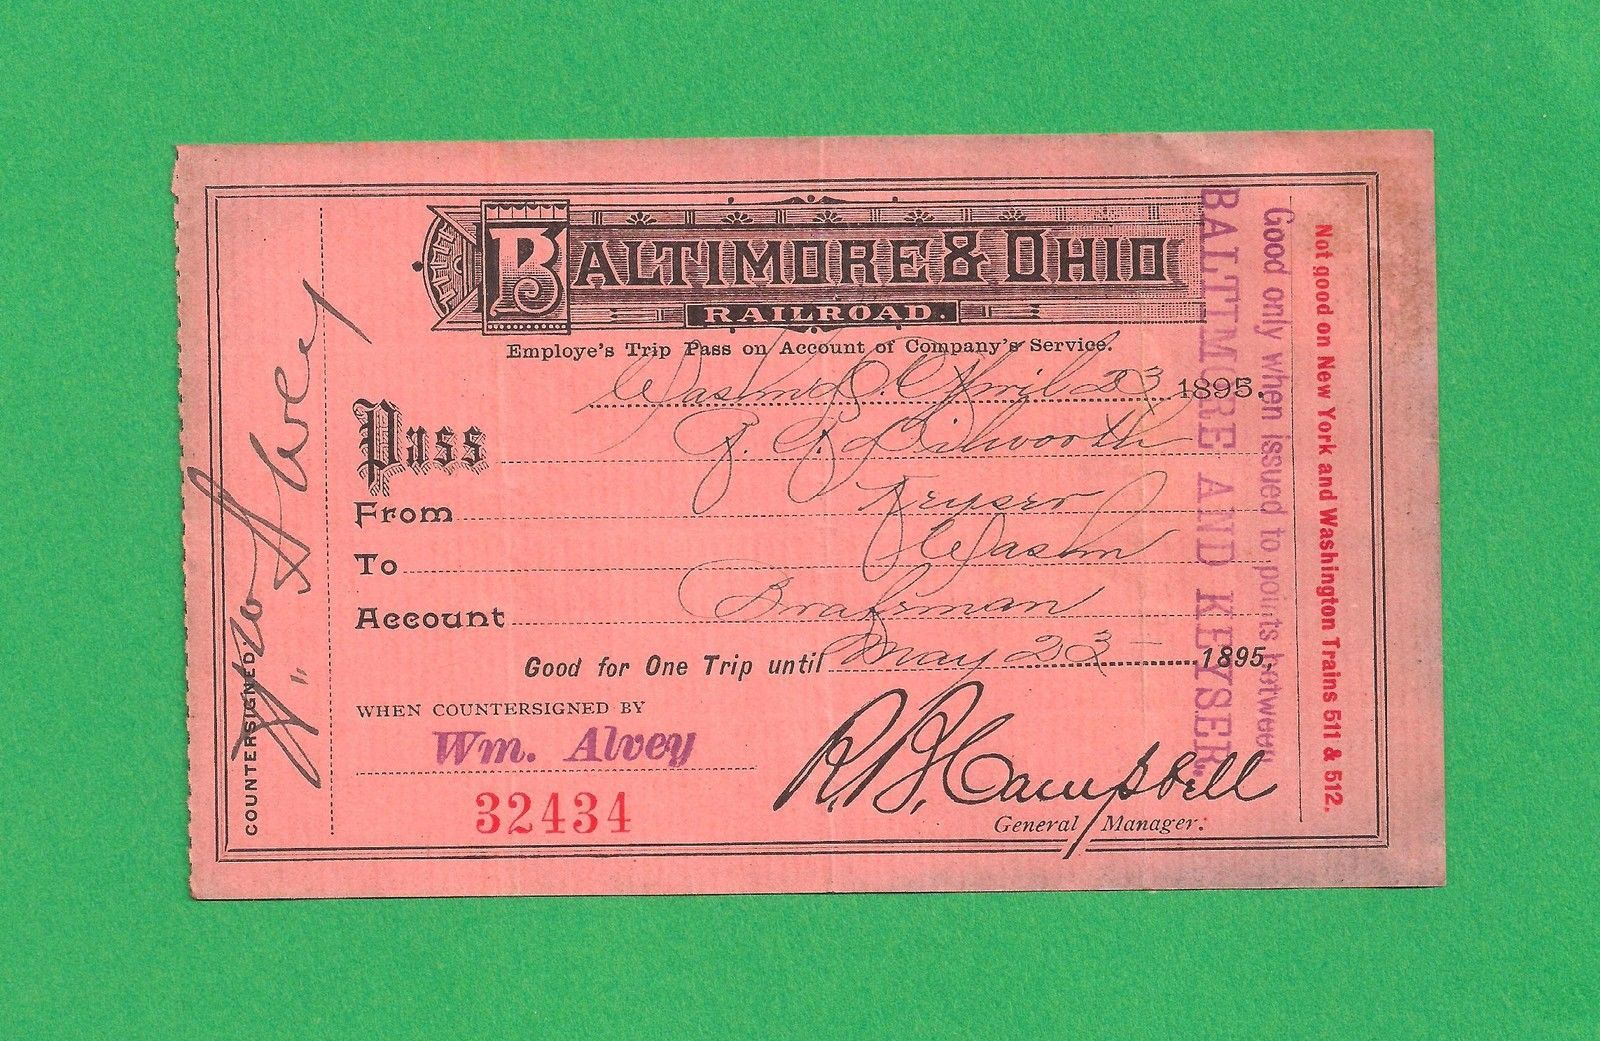 BALTIMORE & OHIO
RAILROAD.
Employe's Trip Pass on Account of Company's Service.
Washn D.C. April 23 1895.
Pass Dilworth
From Keyser
To Washn
Account Brakeman
Good for One Trip until May 23 – 1895,
WHEN COUNTERSIGNED BY
Wm. Alvey
32434
R. B. Campbell
General Manager.
COUNTERSIGNED
Wm Alvey
Good only when issued to points between
BALTIMORE AND KEYSER.
Not good on New York and Washington Trains 511 & 512.